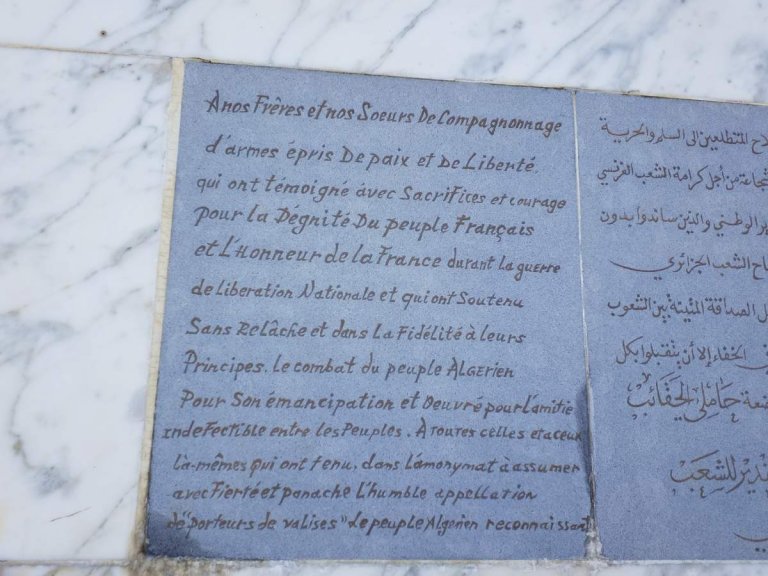 A nos Frères et nos Soeurs De Compagnonnage
d'armes épris De paix et De Liberté.
qui ont témoigné avec Sacrifices et courage
pour la Dégnité Du peuple Français
et L'Honneur de la France durant la guerre
de Liberation Nationale et qui ont Soutenu
Sans Relâche et dans La Fidélité à leurs
Principes. le combat du peuple ALGERIEN
Pour Son émancipation et Oeuvré pour l'amitié
indeFectible entre les Peuples. A Toutes celles et à ceux
là-mêmes qui ont tenu. dans l'anonymat à assumer
avec Fierté et panache L'humble appellation
de "porteurs de valises" Le peuple Algerien reconnaissant
المتطلعين إلى السلم والحرية
من أجل كرامة الشعب الفرنسي
الوطني والذين ساندوا بدون
الشعب الجزائري
الصداقة المتينة بين الشعوب
الخفاء إلا أن يتقبلوا بكل
حاملي الحقائب
للشعب